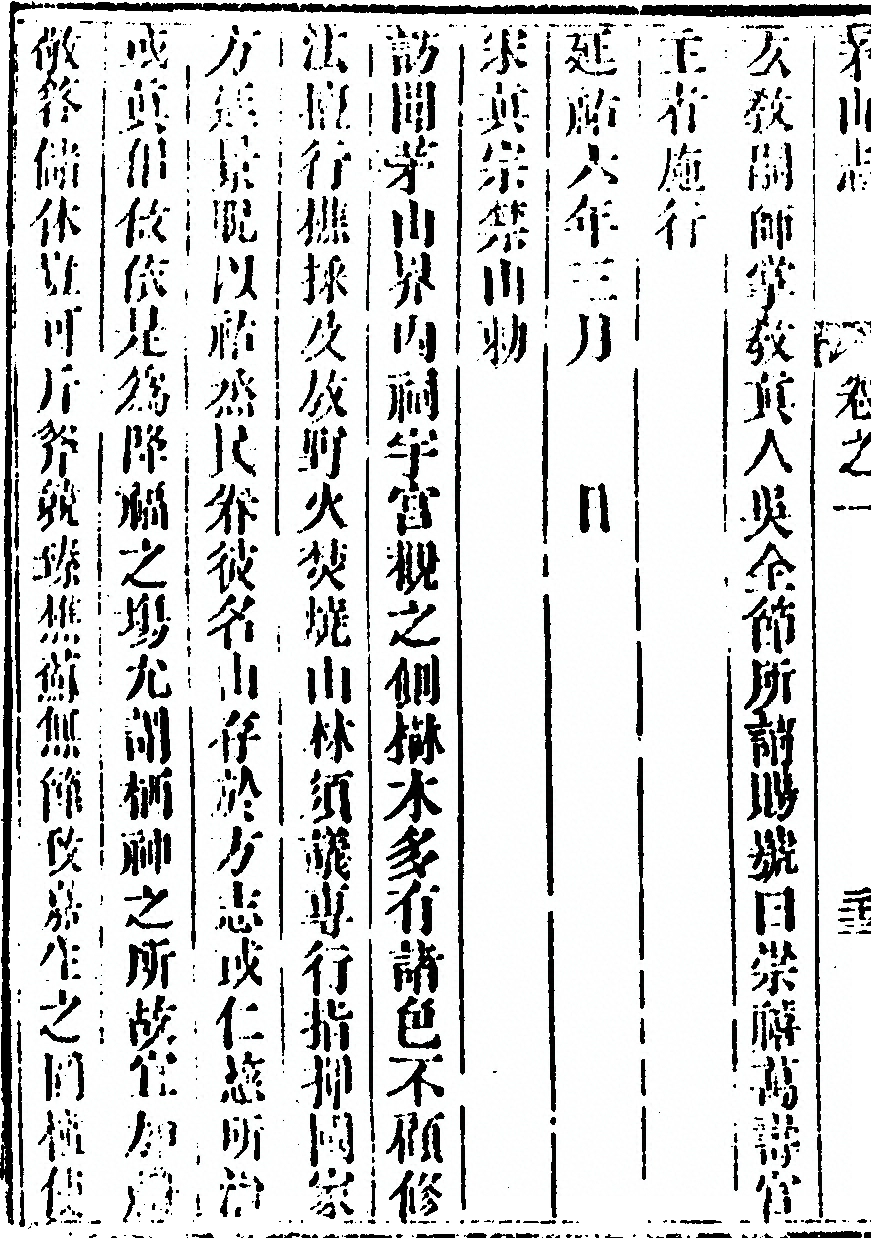 茅山志　卷之一
玄教嗣師掌教真人吳全節所請賜號曰崇禧萬壽宮
主者施行
延祐六年三月　日
宋真宗禁山勅
訪聞茅山界內祠宇宮觀之側樹木多有諸色不顧條
法擅行樵採及放野火焚燒山林須議專行指揮國家
方延景貺以祐烝民眷彼名山存於方志或仁慈所治
或真侶攸依是為降福之場尤謂栖神之所故宜加
敬答儲休豈可斤斧競臻樵蘇無節致嘉生之罔植使